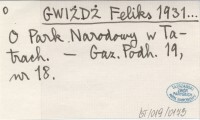 o GWIŹDŹ Feliks 1931...
O Park Narodowy w Ta-
trach. — Gaz. Podh. 19,
nr 18.